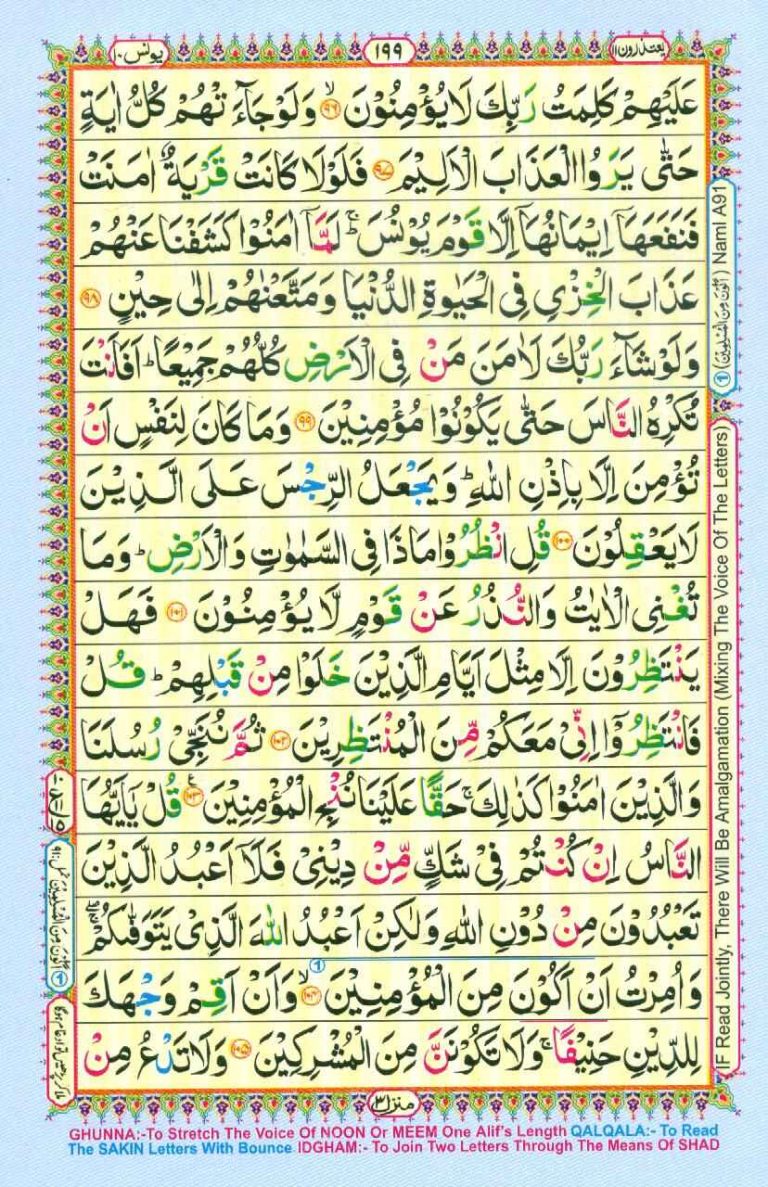 یعتذرون ۱۱
۱۹۹
یونس ۱۰
عَلَيْهِمْ كَلِمَتُ رَبِّكَ لَا يُؤْمِنُوْنَ ۙ‏﴿۹۶﴾ وَلَوْ جَآءَ تْهُمْ كُلُّ اٰيَةٍ
حَتّٰى يَرَوُا الْعَذَابَ الْاَلِيْمَ ﴿۹۷﴾ فَلَوْلَا كَانَتْ قَرْيَةٌ اٰمَنَتْ
فَنَفَعَهَاۤ اِيْمَانُهَاۤ اِلَّا قَوْمَ يُوْنُسَ ؕ لَمَّاۤ اٰمَنُوْا كَشَفْنَا عَنْهُمْ
عَذَابَ الْخِزْىِ فِى الْحَيٰوةِ الدُّنْيَا وَمَتَّعْنٰهُمْ اِلٰى حِيْنٍ ﴿۹۸﴾
وَلَوْ شَآءَ رَبُّكَ لَاٰمَنَ مَنْ فِى الْاَرْضِ كُلُّهُمْ جَمِيْعًا ؕ اَفَاَنْتَ
تُكْرِهُ النَّاسَ حَتّٰى يَكُوْنُوْا مُؤْمِنِيْنَ ﴿۹۹﴾ وَمَا كَانَ لِنَفْسٍ اَنْ
تُؤْمِنَ اِلَّا بِاِذْنِ اللّٰهِ ؕ وَيَجْعَلُ الرِّجْسَ عَلَى الَّذِيْنَ
لَا يَعْقِلُوْنَ ﴿۱۰۰﴾ قُلِ انْظُرُوْا مَاذَا فِى السَّمٰوٰتِ وَالْاَرْضِ ؕ وَمَا
تُغْنِى الْاٰيٰتُ وَالنُّذُرُ عَنْ قَوْمٍ لَّا يُؤْمِنُوْنَ ﴿۱۰۱﴾ فَهَلْ
يَنْتَظِرُوْنَ اِلَّا مِثْلَ اَيَّامِ الَّذِيْنَ خَلَوْا مِنْ قَبْلِهِمْ ؕ قُلْ
فَانْتَظِرُوْۤا اِنِّىْ مَعَكُمْ مِّنَ الْمُنْتَظِرِيْنَ ﴿۱۰۲﴾ ثُمَّ نُنَجِّىْ رُسُلَنَا
وَالَّذِيْنَ اٰمَنُوْا كَذٰلِكَ ۚ حَقًّا عَلَيْنَا نُنْجِ الْمُؤْمِنِيْنَ ﴿۱۰۳﴾ قُلْ يٰۤاَيُّهَا
النَّاسُ اِنْ كُنْتُمْ فِىْ شَكٍّ مِّنْ دِيْنِىْ فَلَاۤ اَعْبُدُ الَّذِيْنَ
تَعْبُدُوْنَ مِنْ دُوْنِ اللّٰهِ وَلٰكِنْ اَعْبُدُ اللّٰهَ الَّذِىْ يَتَوَفّٰٮكُمْ
وَاُمِرْتُ اَنْ اَكُوْنَ مِنَ الْمُؤْمِنِيْنَ ۙ ﴿۱۰۴﴾ وَاَنْ اَقِمْ وَجْهَكَ
لِلدِّيْنِ حَنِيْفًا ۚ وَلَا تَكُوْنَنَّ مِنَ الْمُشْرِكِيْنَ ﴿۱۰۵﴾ وَلَا تَدْعُ مِنْ
① (اَكُوْنَ مِنَ الْمُسْلِمِيْنَ) Naml A91
IF Read Jointly, There Will Be Amalgamation (Mixing The Voice Of The Letters)
منزل ۳
GHUNNA:-To Stretch The Voice Of NOON Or MEEM One Alif's Length QALQALA:- To Read
The SAKIN Letters With Bounce IDGHAM:- To Join Two Letters Through The Means Of SHAD